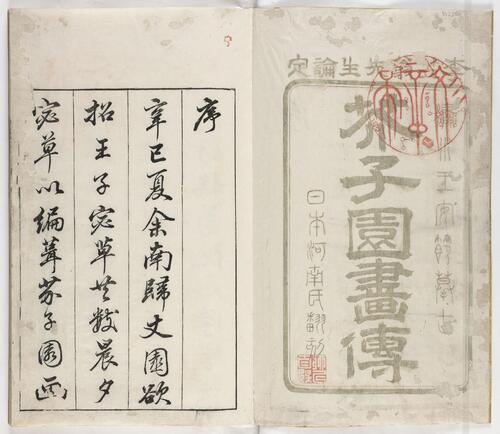 李笠翁先生論定
繡水王安節摹古
芥子園畫傳
日本河南氏翻刻
序
辛巳夏余南歸文園欲
招王子宓草共數晨夕
宓草以編葺芥子園画